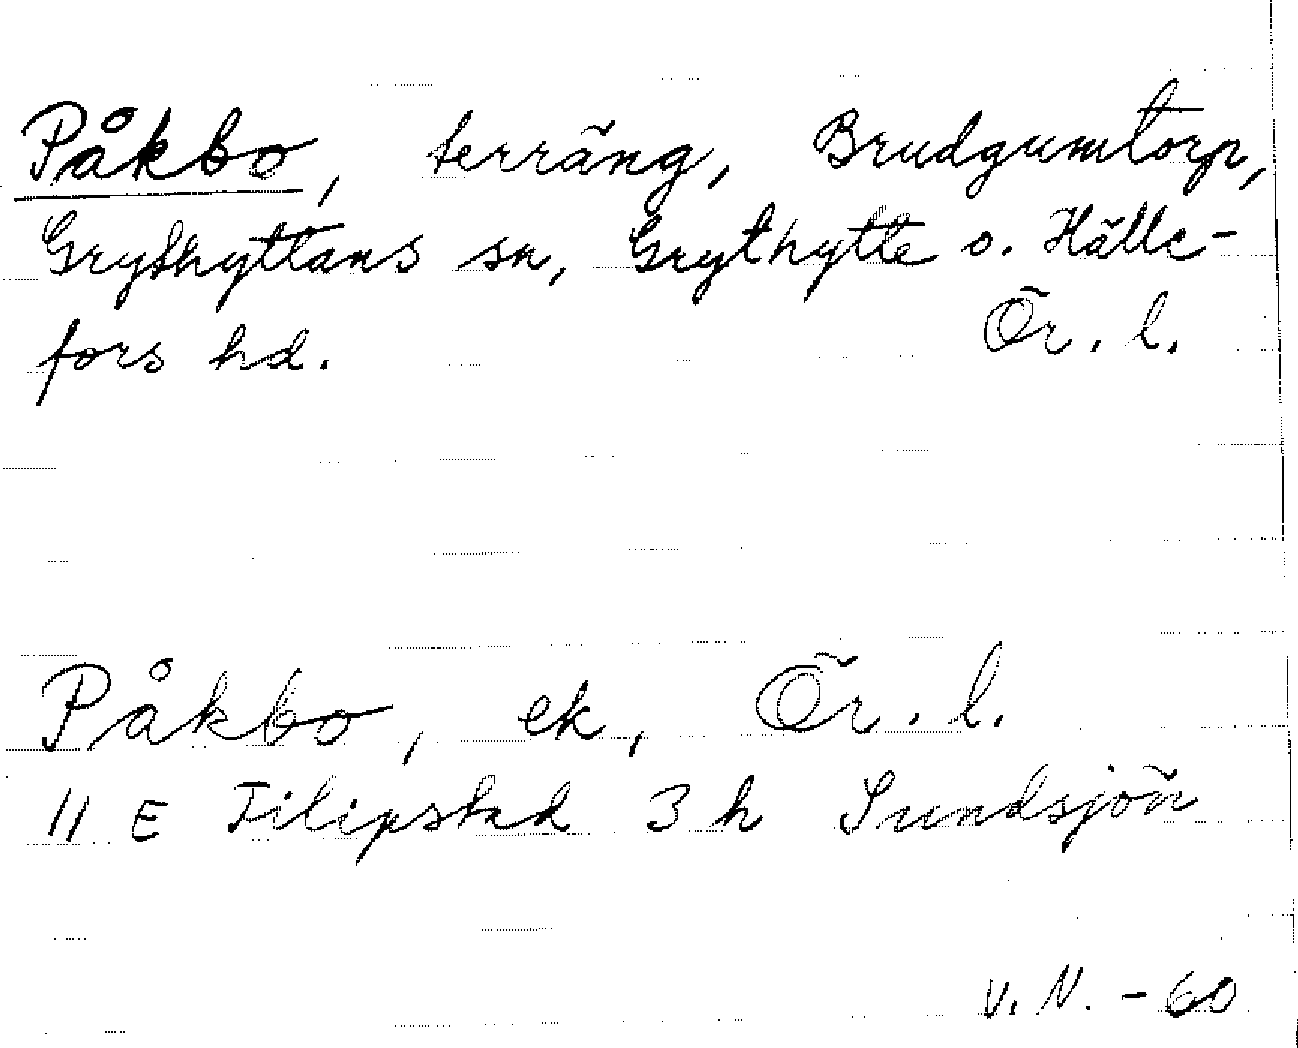 Påkbo, terräng, Brudgumtorp,
Grythyttans sn, Grythytte o. Hälle-
fors hd. Ör. l.
Påkbo, ek, Ör. l.
11 E Filipstad 3 h Sundsjön
V. N. - 60